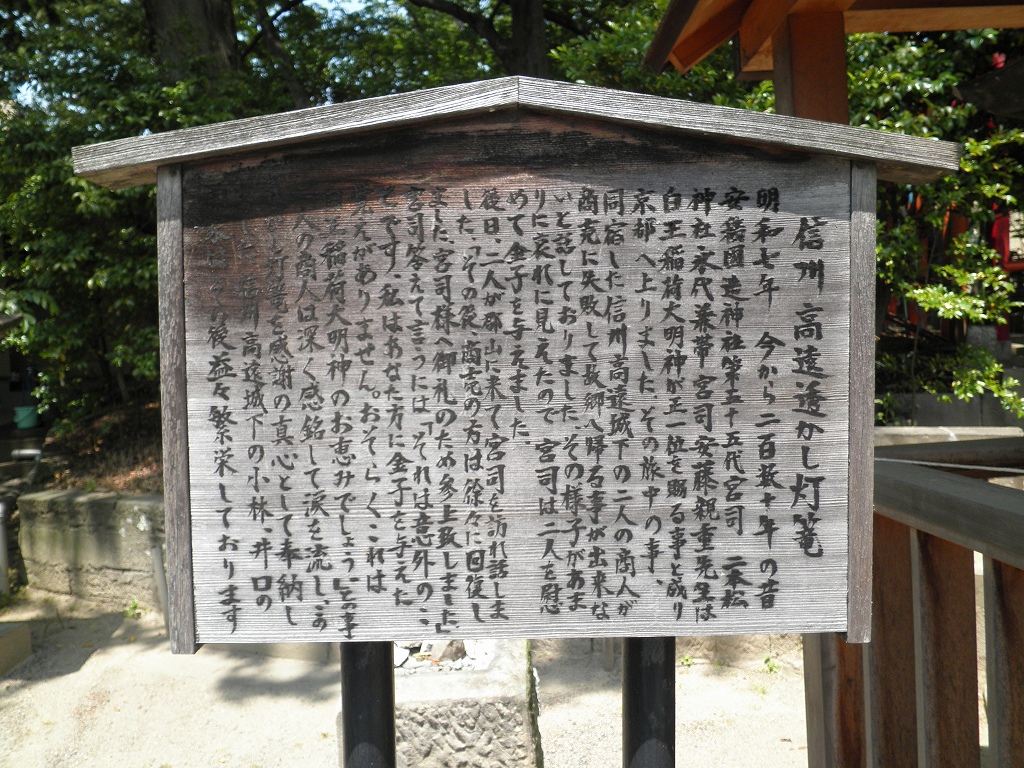 信州 高遠透かし灯篭
明和七年 今から二百数十年の昔
安積國造神社第五十五代宮司 二本松
神社永代兼帯宮司安藤親重先生は
白王稲荷大明神が正一位を賜る事と成り
京都へ上りました。その旅中の事、
同宿した信州高遠城下の二人の商人が
商売に失敗して故郷へ帰る事が出来な
いと話しておりました。その様子があま
りに哀れに見えたので 宮司は二人を慰
めて金子を与えました。
後日、二人が郡山に来て宮司を訪れ話しま
した。「その後、商売の方は徐々に回復し
ました。宮司様へ御礼のため参上致しました」
宮司答えて言うには「それは意外のこ
とです、私はあなた方に金子を与えた
覚えがありません。おそらくこれは
稲荷大明神のお恵みでしょう」この事
人の商人は深く感銘して涙を流し、
灯篭を感謝の真心として奉納し
信州高遠城下の小林、井口の
その後益々繁栄しております